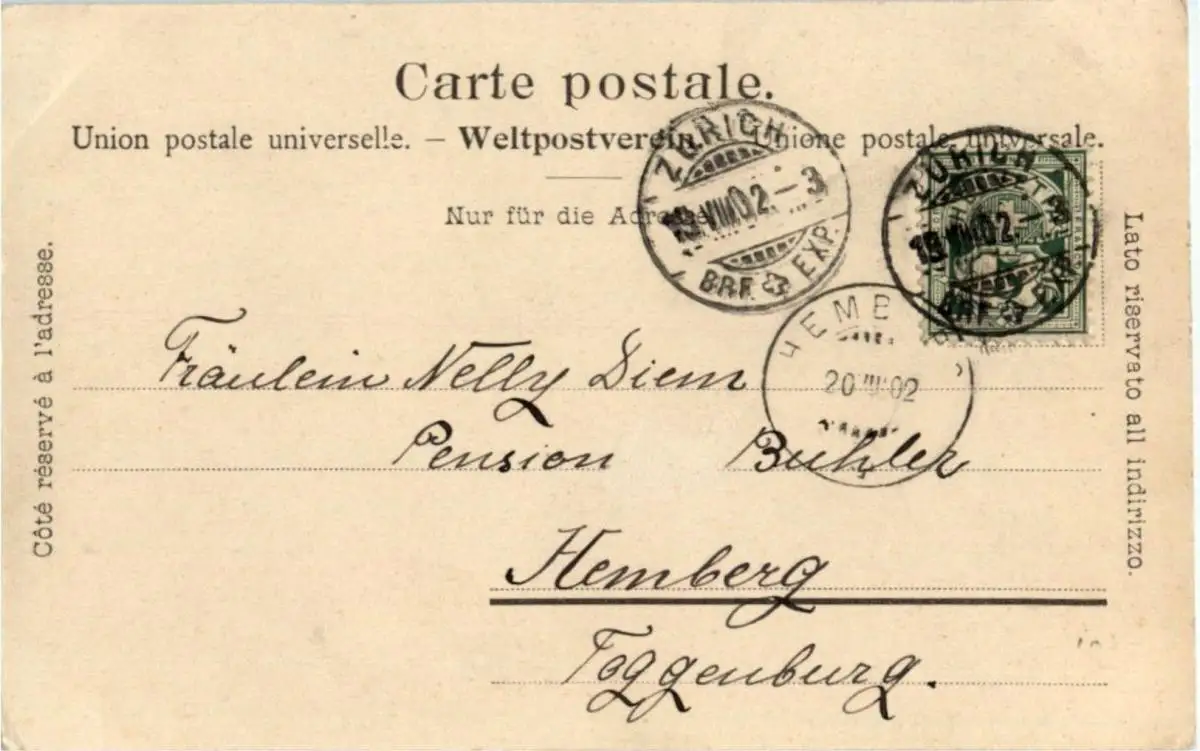 Carte postale.
Union postale universelle. – Weltpostverein. – Unione postale universale.
Nur für die Adresse
ZÜRICH
19.VIII.02.–3
BRF. EXP.
ZÜRICH
19.VIII.02.–3
BRF. EXP.
HEMBERG
20 VIII 02
Côté réservé à l'adresse.
Lato riservato all indirizzo.
Fräulein Nelly Diem
Pension Buhler
Hemberg
Toggenburg.